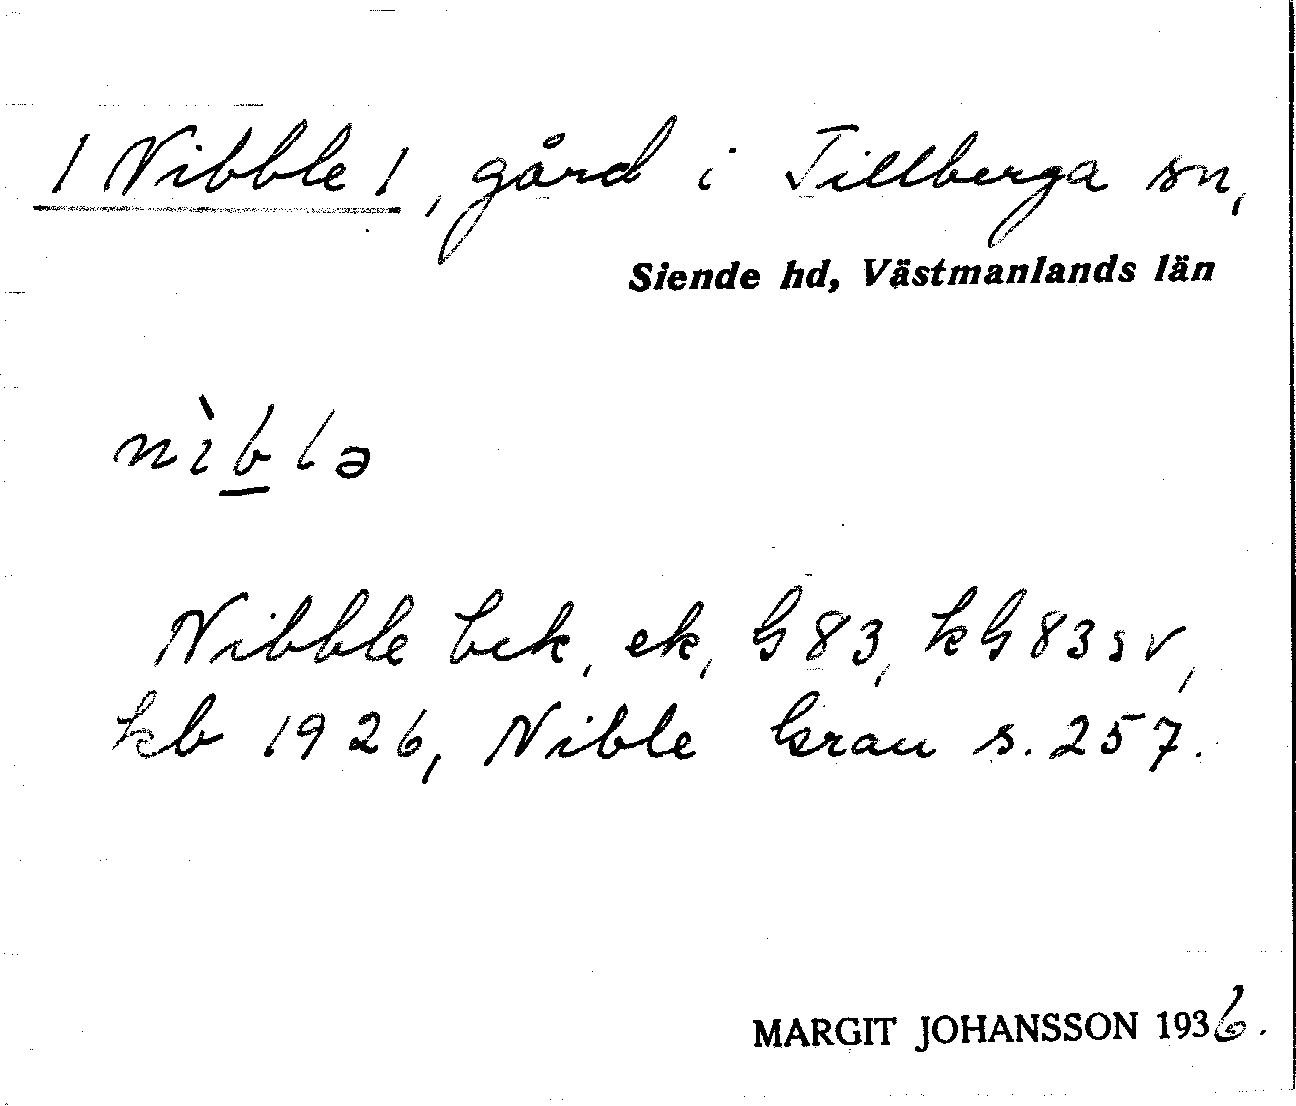 / Nibble /, gård i Tillberga sn,
Siende hd, Västmanlands län
nìblə
Nibble bek, ek, G 83, kG 83 sv,
kb 1926, Nible Grau s. 257.
MARGIT JOHANSSON 1936.